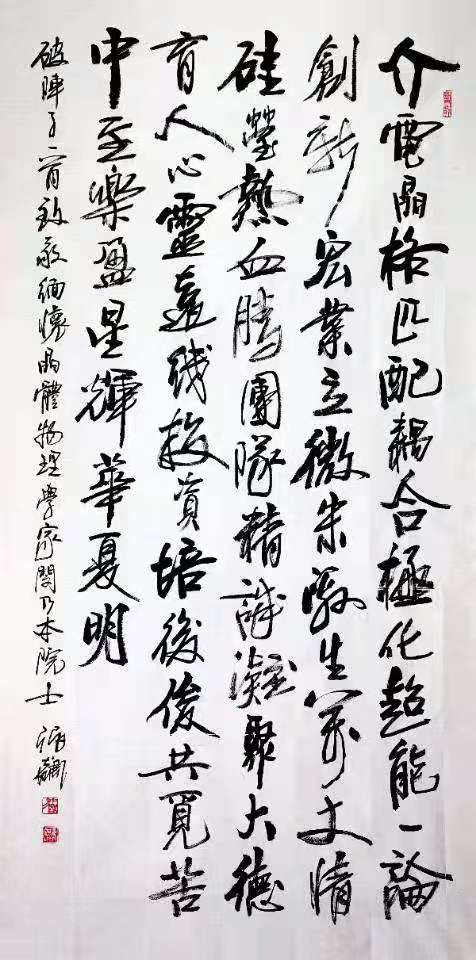 介電晶格匹配耦合極化超能一論
創新宏業立微激生萬丈情
硅瑩熱血騰團隊精誠凝聚大德
育人心靈投資培後俊共覓苦
中至樂盈星輝華夏明
破陣子一首致敬緬懷晶體物理學家閔乃本院士